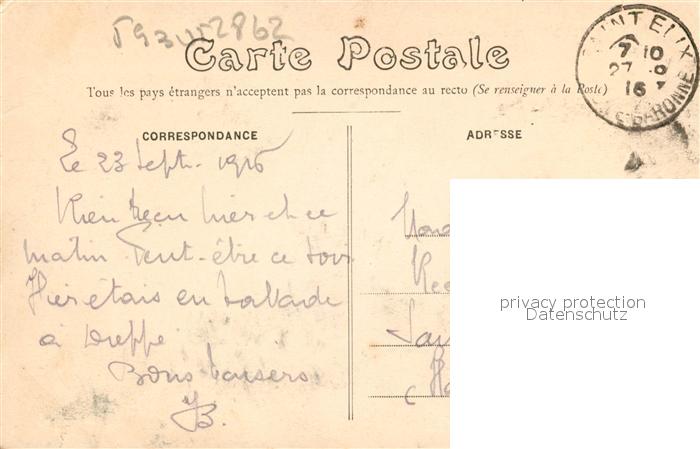 Carte Postale
Tous les pays étrangers n'acceptent pas la correspondance au recto (Se renseigner à la Poste)
CORRESPONDANCE
ADRESSE
Le 23 Sept. 1916
Rien Reçu hier et ce
matin Peut-être ce soir
Hier étais en ballade
à Dieppe
Bons baisers
JB.
SAINT ELIX
7 10
27 9
16
privacy protection
Datenschutz